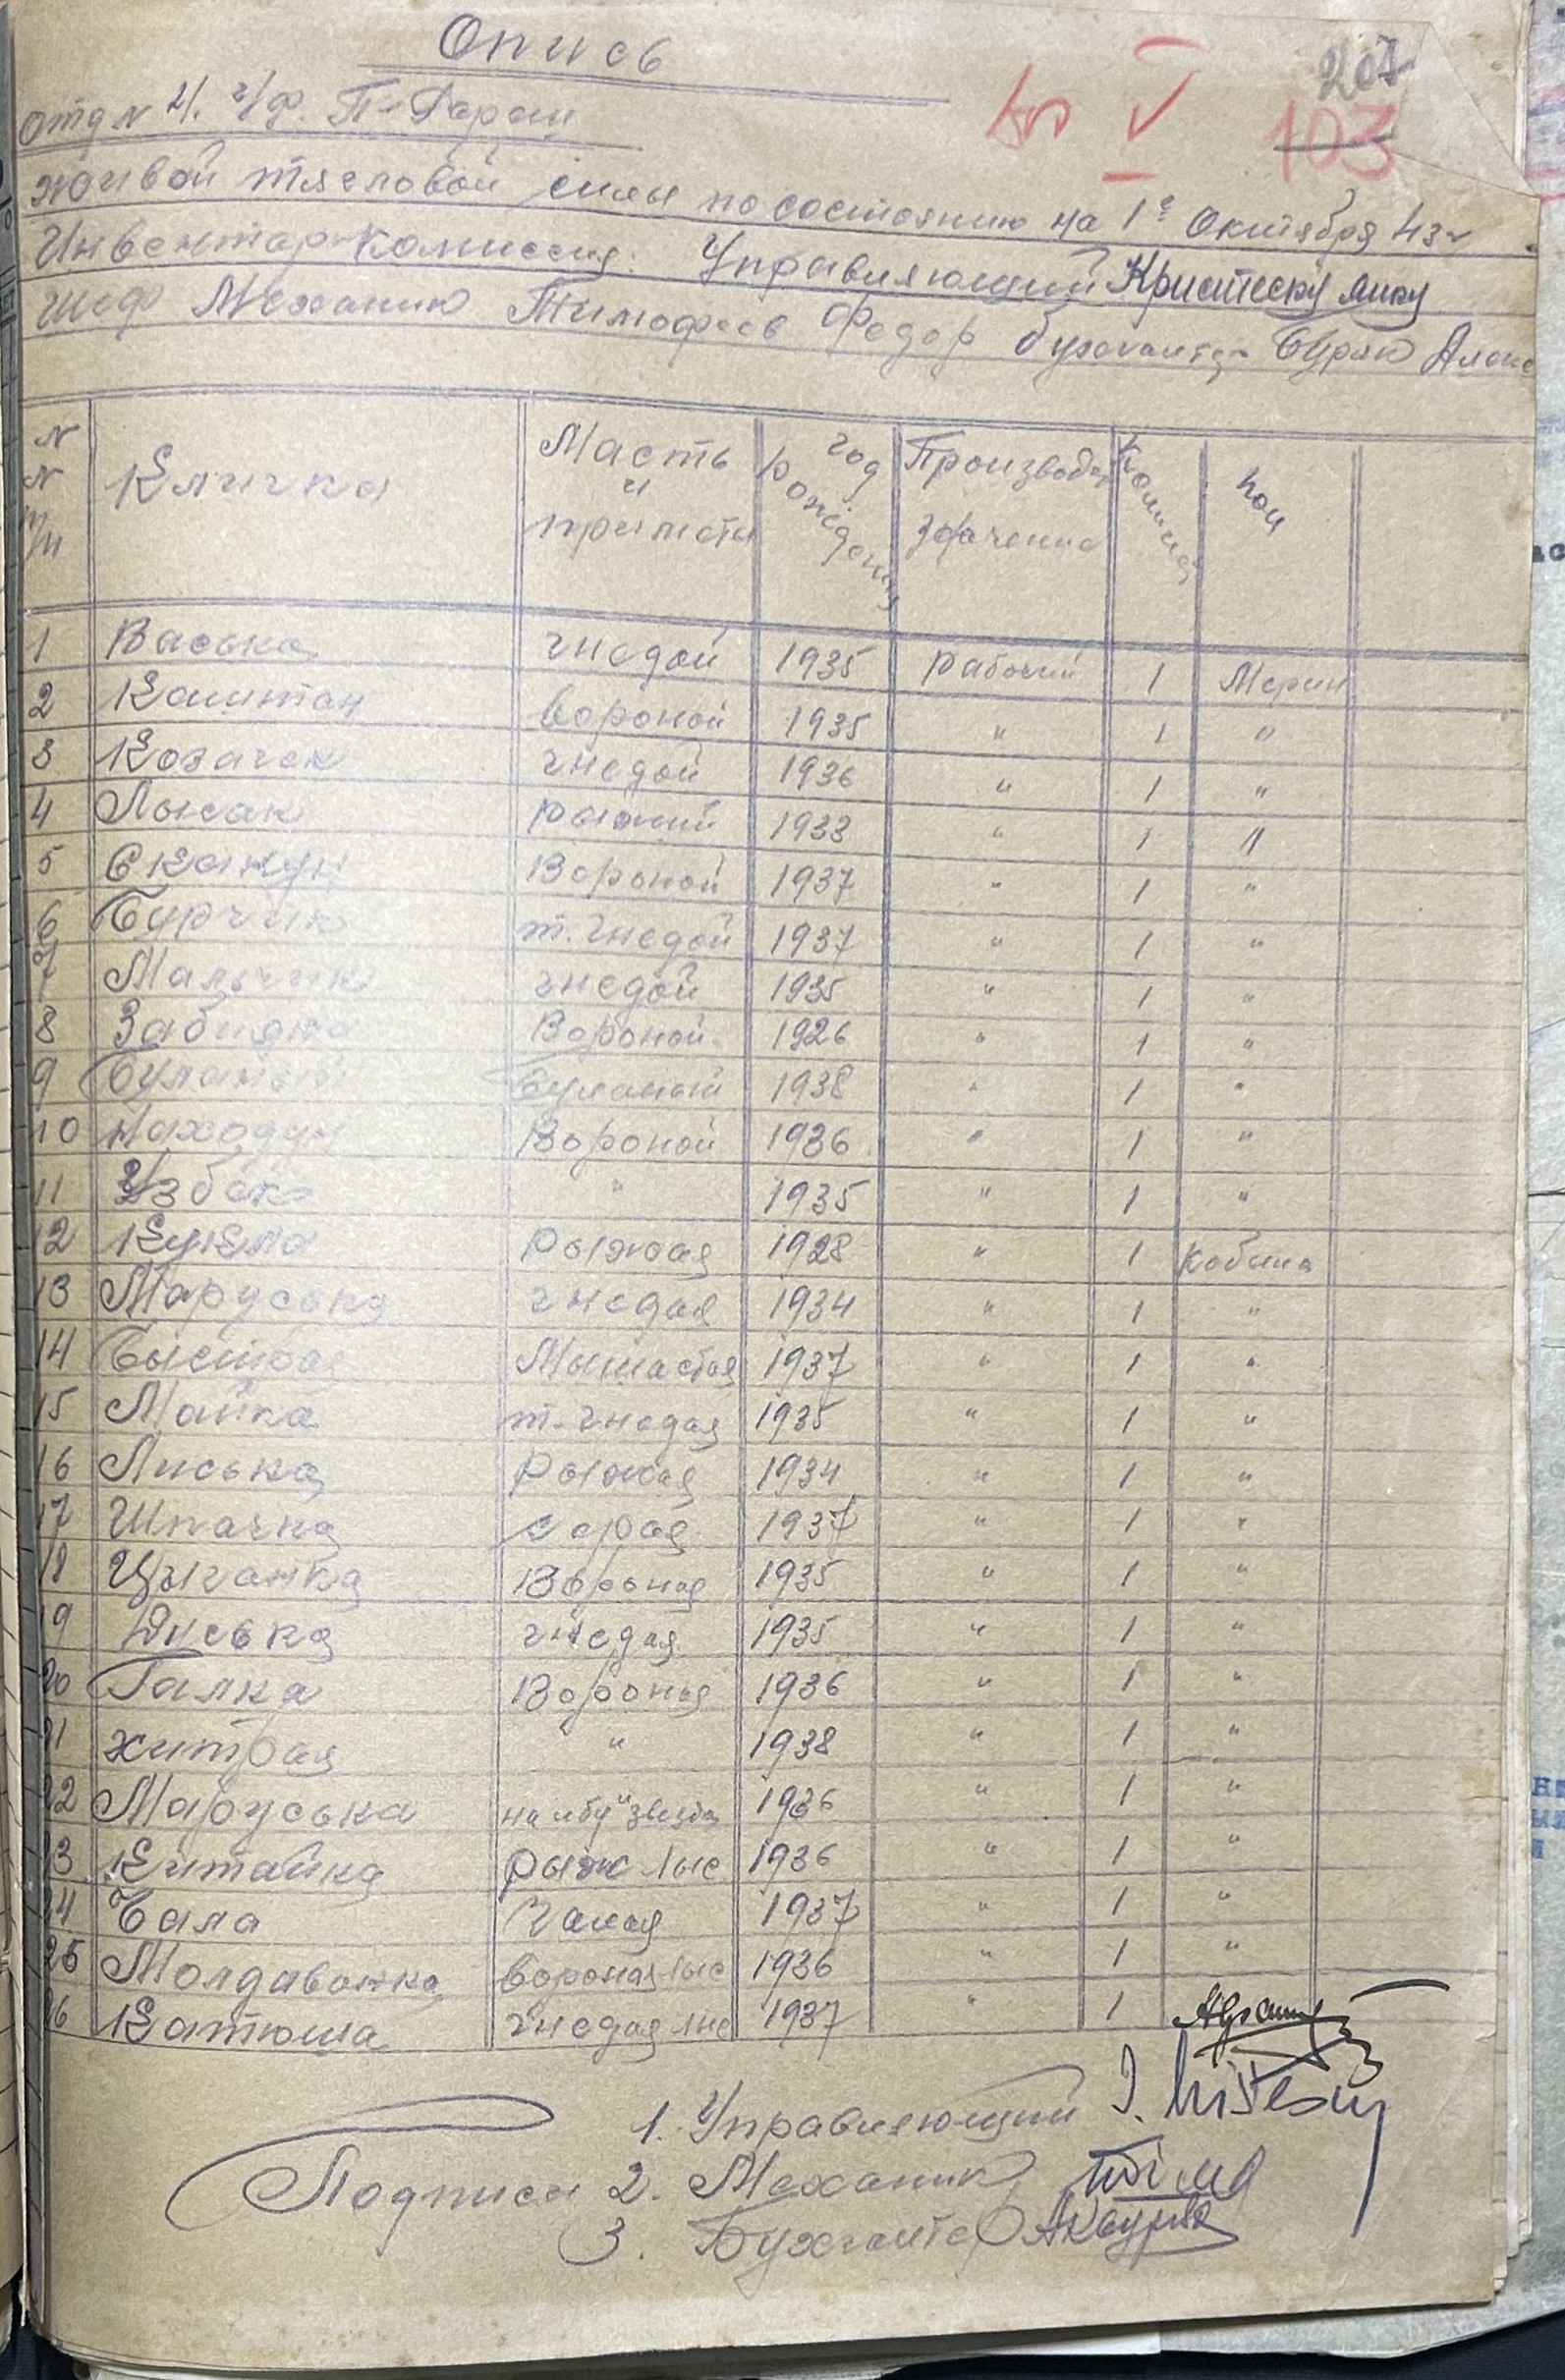 Опись
207
103
V
отд N 4.
живой тягловой силы по состоянию на 1е Октября 43г
Инвентар-комиссия: Управляющий Кристеску Мику
шеф Механик Тимофеев Федор бухгалтер Буряк
N N п/п | Кличка | Масть и приметы | год рождения | Производ. значение | Колич | пол
1 Васька гнедой 1935 рабочий 1 Мерин
2 Каштан вороной 1935 " 1 "
3 Козачек гнедой 1936 " 1 "
4 Лысак рыжий 1933 " 1 "
5 Скакун Вороной 1937 " 1 "
6 Бурчик т. гнедой 1937 " 1 "
7 Мальчик гнедой 1935 " 1 "
8 Забияка Вороной 1926 " 1 "
9 Буланый Буланый 1938 " 1 "
10 Находун Вороной 1936 " 1 "
11 Узбек " 1935 " 1 "
12 Кукла рыжая 1928 " 1 кобыла
13 Маруська гнедая 1934 " 1 "
14 Быстрая Мышастая 1937 " 1 "
15 Майка т. гнедая 1935 " 1 "
16 Лиська рыжая 1934 " 1 "
17 Шпачка серая 1937 " 1 "
18 Цыганка Вороная 1935 " 1 "
19 Дуська гнедая 1935 " 1 "
20 Галка Вороная 1936 " 1 "
21 хитрая " 1938 " 1 "
22 Маруська " на лбу звезда 1936 " 1 "
23 Китайка рыж лыс 1936 " 1 "
24 Бала 1937 " 1 "
25 Молдаванка вороная лыс 1936 " 1 "
26 Катюша гнедая лыс 1937 " 1
Подписи
1. Управляющий
2. Механик
3. Бухгалтер